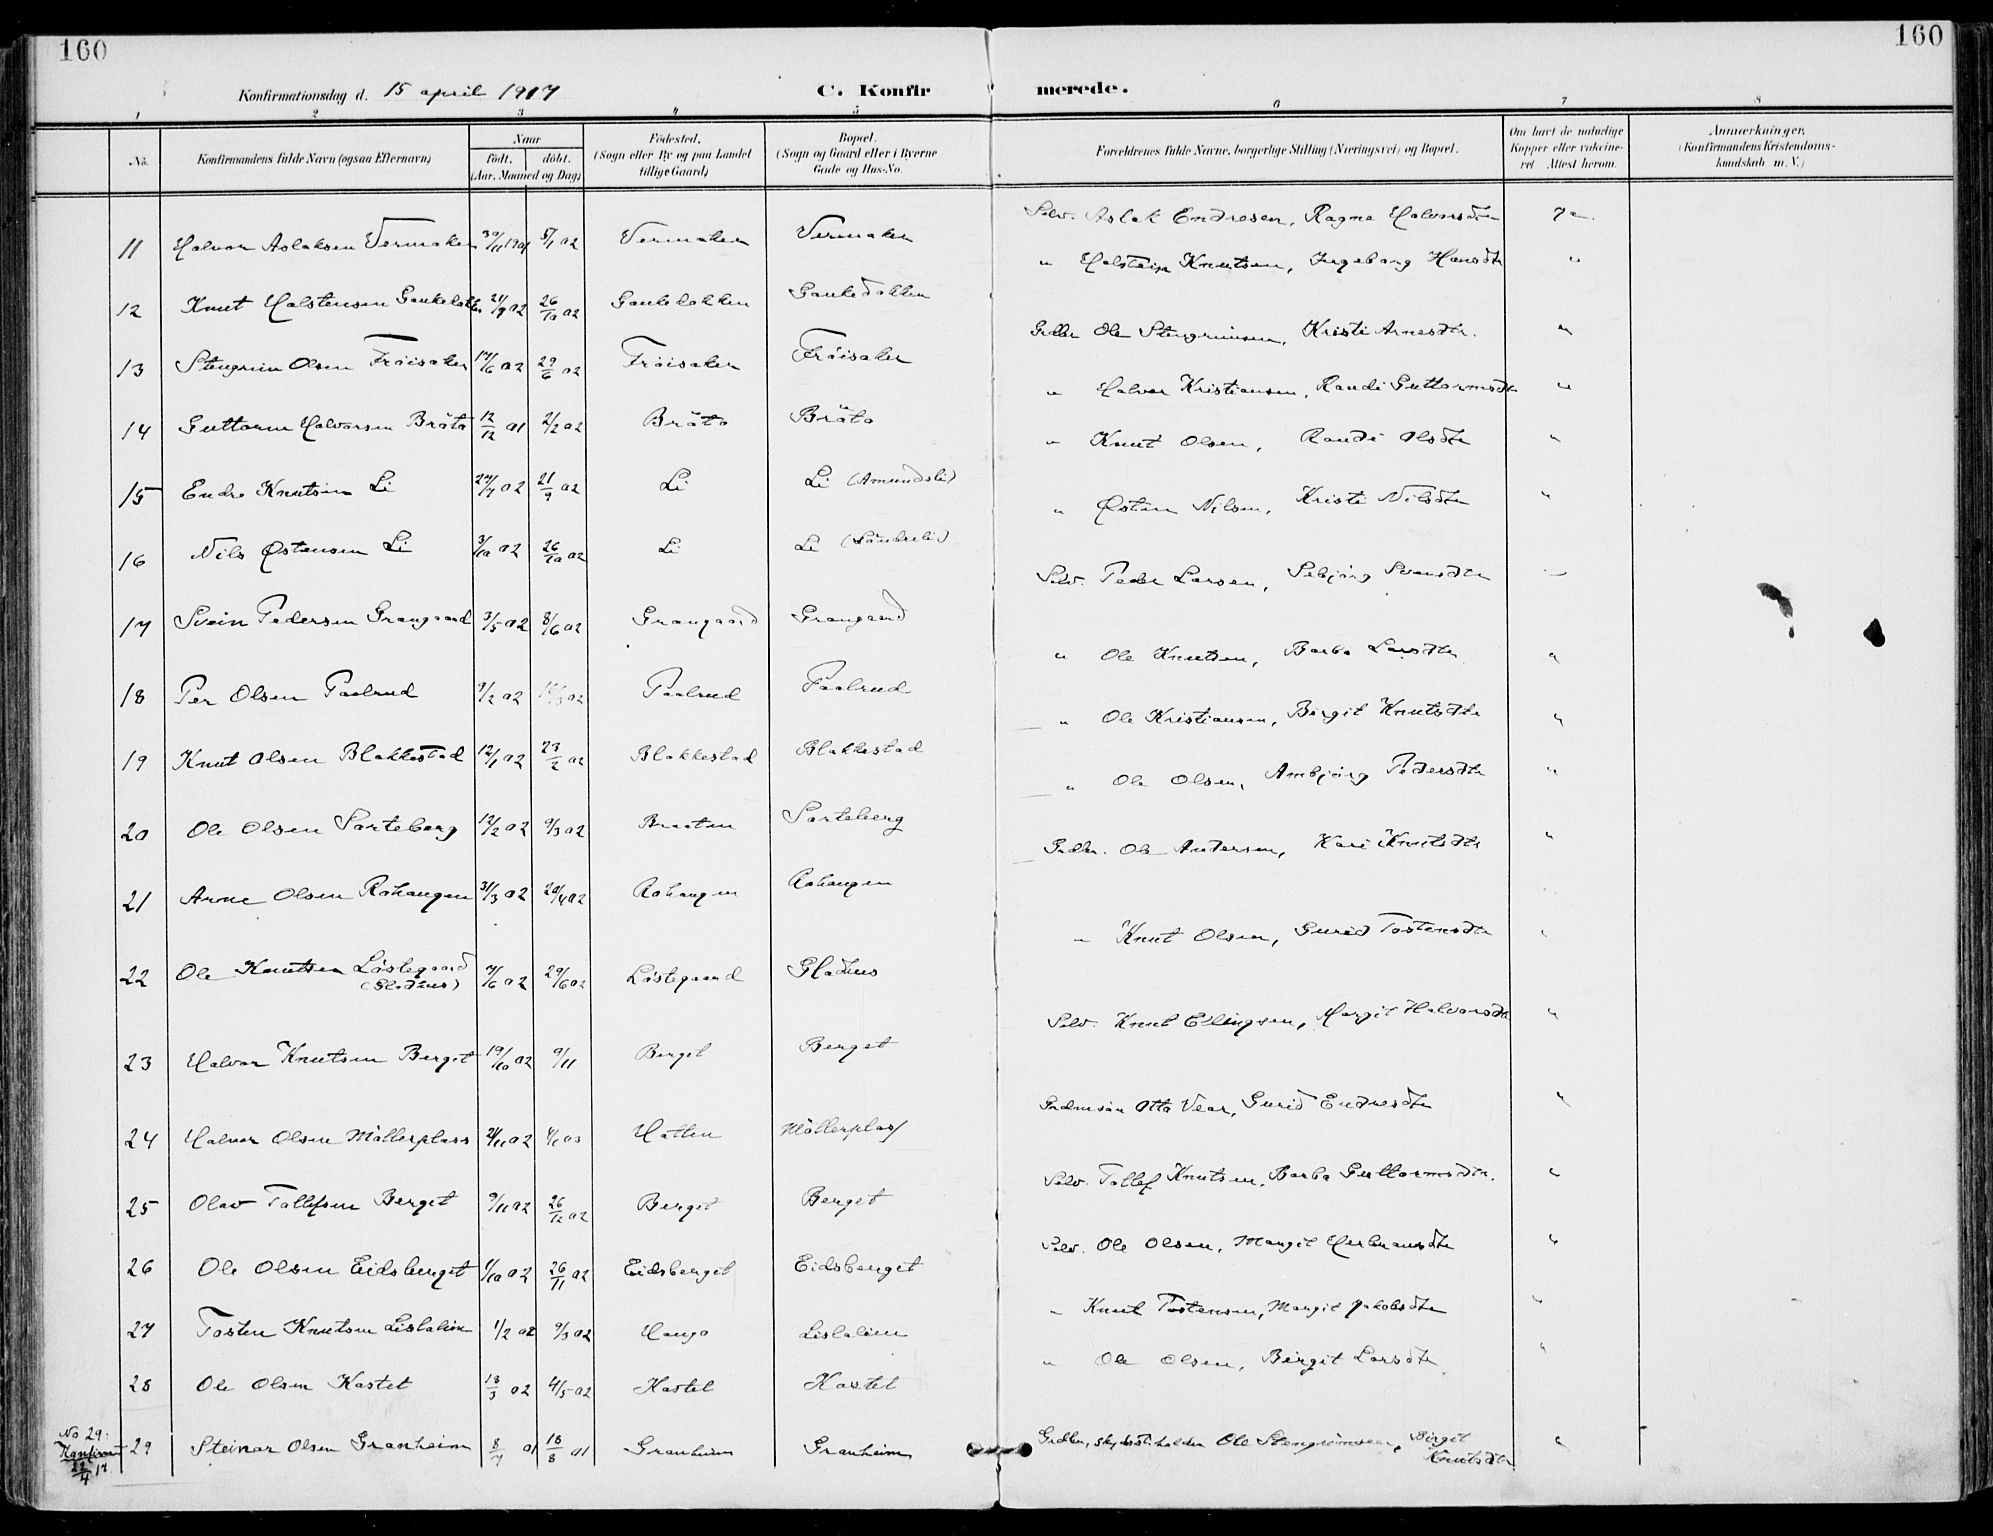 160
160
Konfirmationsdag d. 15 april 1917
C. Konfirmerede.
1 2 3 4 5 6 7 8
No.
Konfirmandens fulde Navn (ogsaa Efternavn)
Naar
födt. döbt.
(Aar, Maaned og Dag)
Födested.
(Sogn eller By og paa Landet
tillige Gaard)
Bopæl.
(Sogn og Gaard eller i Byerne
Gade og Hus-No.
Forældrenes fulde Navne, borgerlige Stilling (Næringsvei) og Bopæl.
Om havt de naturlige
Kopper eller vakcine-
ret Attest herom.
Anmærkninger.
(Konfirmandens Kristendoms-
kundskab m. V.)
11 Halvor Aslaksen Vermaker 30/11 1901 5/1 02 Vermaker Vermaker Selv. Aslak Endresen, Ragne Halvorsdtr ja.
12 Knut Halstensen Gaukedokken 21/9 02 26/10 02 Gaukedokken Gaukedokken " Halstein Knutsen, Ingeborg Hansdtr "
13 Stengrim Olsen Fröisaker 17/6 02 29/6 02 Fröisaker Fröisaker Grdbr Ole Stengrimsen, Kristi Arnesdtr. "
14 Guttorm Halvorsen Bråto 12/12 01 2/2 02 Bråto Bråto " Halvor Kristiansen, Randi Guttormsdtr "
15 Endre Knutsen Li 27/7 02 21/9 02 Li Li (Amundsli) " Knut Olsen, Randi Olsdtr "
16 Nils Østensen Li 3/10 02 26/10 02 Li Li (Söndreli) " Østen Nilsen, Kristi Nilsdtr "
17 Svein Pedersen Grangaard 3/5 02 8/6 02 Grangaard Grangaard Selv. Peder Larsen, Sebjörg Svensdtr "
18 Per Olsen Paalrud 9/2 02 02 Paalrud Paalrud " Ole Knutsen, Barbo Larsdtr "
19 Knut Olsen Blakkestad 12/1 02 23/2 02 Blakkestad Blakkestad " Ole Kristiansen, Birgit Knutsdtr "
20 Ole Olsen Sorteberg 12/2 02 9/3 02 Braaten Sorteberg " Ole Olsen, Ambjörg Pedersdtr "
21 Arne Olsen Rohaugen 31/3 02 20/4 02 Rohaugen Rohaugen Grdbr. Ole Andersen, Kari Knutsdtr "
22 Ole Knutsen Löstegaard 7/6 02 29/6 02 Löstegaard Gladhus " Knut Olsen, Gurid Tostensdtr "
(Gladhus)
23 Halvor Knutsen Berget 19/10 02 9/11 Berget Berget Selv. Knut Ellingsen, Margit Halvorsdtr "
24 Halvor Olsen Möllerplass 21/11 02 4/1 03 Hatten Möllerplass Grdmsön Otto Vear, Gurid Endresdtr "
25 Olav Tollefsen Berget 9/11 02 26/12 02 Berget Berget Selv. Tollef Knutsen, Barbo Guttormsdtr. "
26 Ole Olsen Eidsberget 1/10 02 26/11 02 Eidsberget Eidsberget Selv. Ole Olsen, Margit Hermansdtr "
27 Tosten Knutsen Lislalien 1/2 02 9/3 02 Haugo Lislalien " Knut Tostensen, Margit Jakobsdtr "
28 Ole Olsen Kastet 13/3 02 4/5 02 Kastet Kastet " Ole Olsen, Birgit Larsdtr "
No 29:
Konfirmert
22/4 17.
29 Steinar Olsen Granheim 8/7 01 18/8 01 Granheim Granheim Grdbr, skydsstiholder Ole Stengrimsen, Birgit "
Knutsdtr